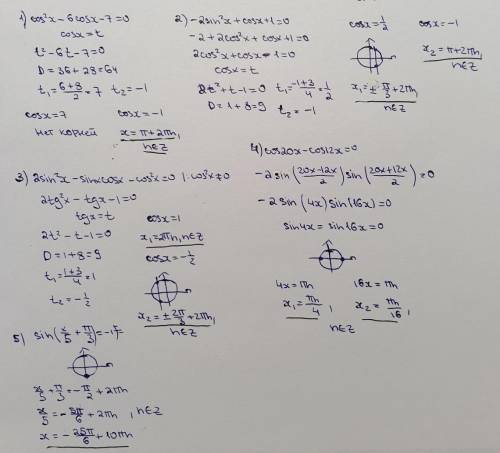 1) cos²x - 6cosx - 7 = 0
cosx = t
t² - 6t - 7 = 0
D = 36 + 28 = 64
t₁ = (6+8)/2 = 7 t₂ = -1
cosx = 7 cosx = -1
нет корней x = π + 2πn,
n∈Z
2) -2sin²x + cosx + 1 = 0
-2 + 2cos²x + cosx + 1 = 0
2cos²x + cosx - 1 = 0
cosx = t
2t² + t - 1 = 0 t₁ = (-1+3)/4 = 1/2
D = 1 + 8 = 9 t₂ = -1
cosx = 1/2 cosx = -1
x₂ = π + 2πn,
n∈Z
x₁ = ± π/3 + 2πn,
n∈Z
3) 2sin²x - sinxcosx - cos²x = 0 |: cos²x ≠ 0
2tg²x - tgx - 1 = 0
tgx = t
2t² - t - 1 = 0
D = 1 + 8 = 9
t₁ = (1+3)/4 = 1
t₂ = -1/2
cosx = 1
x₁ = 2πn, n∈Z
cosx = -1/2
x₂ = ± 2π/3 + 2πn,
n∈Z
4) cos20x - cos12x = 0
-2sin((20x-12x)/2) sin((20x+12x)/2) = 0
-2sin(4x) sin(16x) = 0
sin4x = sin16x = 0
4x = πn 16x = πn
x₁ = πn/4, x₂ = πn/16,
n∈Z
5) sin(x/5 + π/3) = -1
x/5 + π/3 = -π/2 + 2πn
x/5 = -5π/6 + 2πn, n∈Z
x = -25π/6 + 10πn